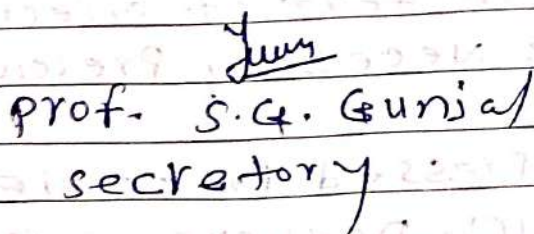 prof. S.G. Gunjal
secretory